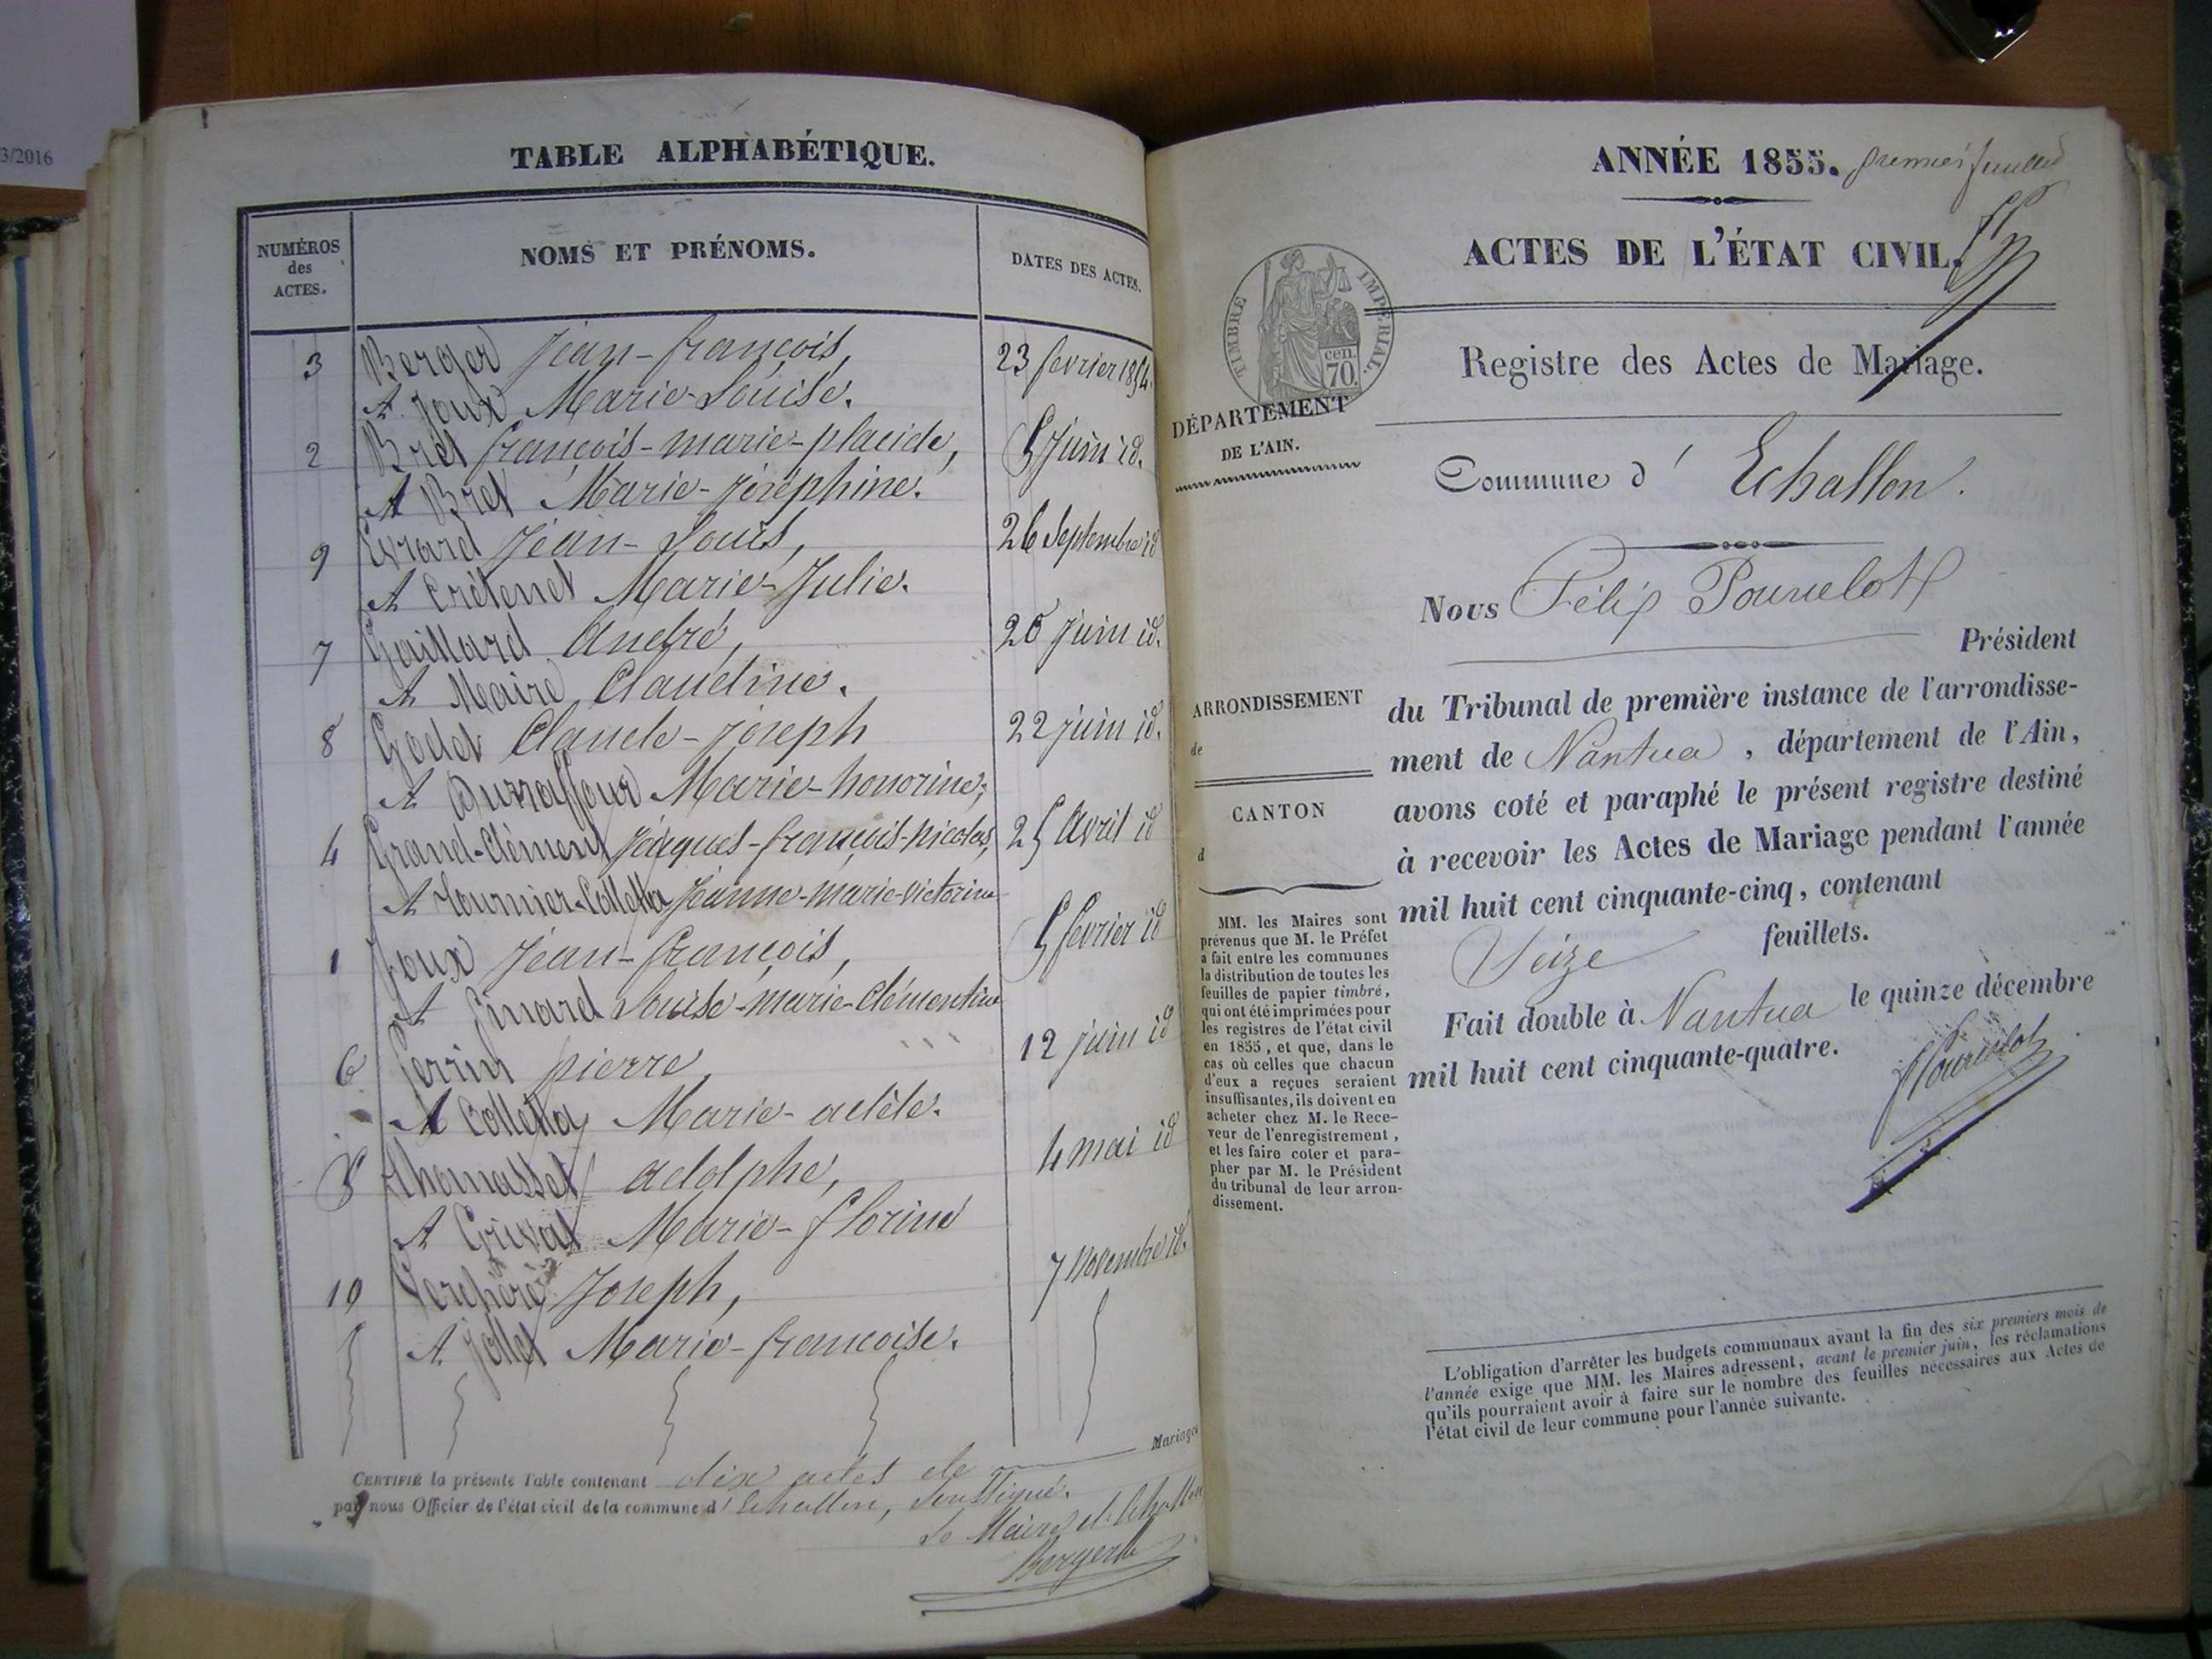 3/2016
TABLE ALPHABÉTIQUE.
NUMÉROS des ACTES.
NOMS ET PRÉNOMS.
DATES DES ACTES.
3 Berger Jean-françois, 23 fevrier 1854.
A Joux Marie-Louise.
2 Bret françois-marie-placide, 5 juin id.
A Bret Marie-joséphine.
9 Evrard Jean-Louis, 26 Septembre id
A Crétenet Marie-Julie.
7 Gaillard André, 20 juin id.
A Maire Claudine.
8 Godet Claude-joseph 22 juin id.
A Durraffour Marie-honorine;
4 Grand-Clément Jacques-françois-nicolas, 25 Avril id
A Tournier-Colletta Jeanne-marie-victorine
1 Joux Jean-françois, 5 fevrier id
A Pinard Louise-marie-Clémentine
6 Perrin pierre, 12 juin id
A Colletta Marie-adèle.
5 Thomasset adolphe, 4 mai id
A Grivat Marie-florine
10 Verchère Joseph, 7 Novembre id.
A Jollet Marie-françoise.
CERTIFIÉ la présente Table contenant dix actes de Mariages
par nous Officier de l'état civil de la commune d'Echallon, Soussigné.
Le Maire d'Echallon
Berger
ANNÉE 1855. premier feuillet
ACTES DE L'ÉTAT CIVIL.
TIMBRE IMPÉRIAL.
cen.
70.
Registre des Actes de Mariage.
DÉPARTEMENT
DE L'AIN.
Commune d' Echallon.
Nous Félix Pournelot
Président
ARRONDISSEMENT
de
CANTON
d
du Tribunal de première instance de l'arrondisse-
ment de Nantua, département de l'Ain,
avons coté et paraphé le présent registre destiné
à recevoir les Actes de Mariage pendant l'année
mil huit cent cinquante-cinq, contenant
Seize feuillets.
Fait double à Nantua le quinze décembre
mil huit cent cinquante-quatre.
Pournelot
MM. les Maires sont
prévenus que M. le Préfet
a fait entre les communes
la distribution de toutes les
feuilles de papier timbré,
qui ont été imprimées pour
les registres de l'état civil
en 1855, et que, dans le
cas où celles que chacun
d'eux a reçues seraient
insuffisantes, ils doivent en
acheter chez M. le Rece-
veur de l'enregistrement,
et les faire coter et para-
pher par M. le Président
du tribunal de leur arron-
dissement.
L'obligation d'arrêter les budgets communaux avant la fin des six premiers mois de
l'année exige que MM. les Maires adressent, avant le premier juin, les réclamations
qu'ils pourraient avoir à faire sur le nombre des feuilles nécessaires aux Actes de
l'état civil de leur commune pour l'année suivante.